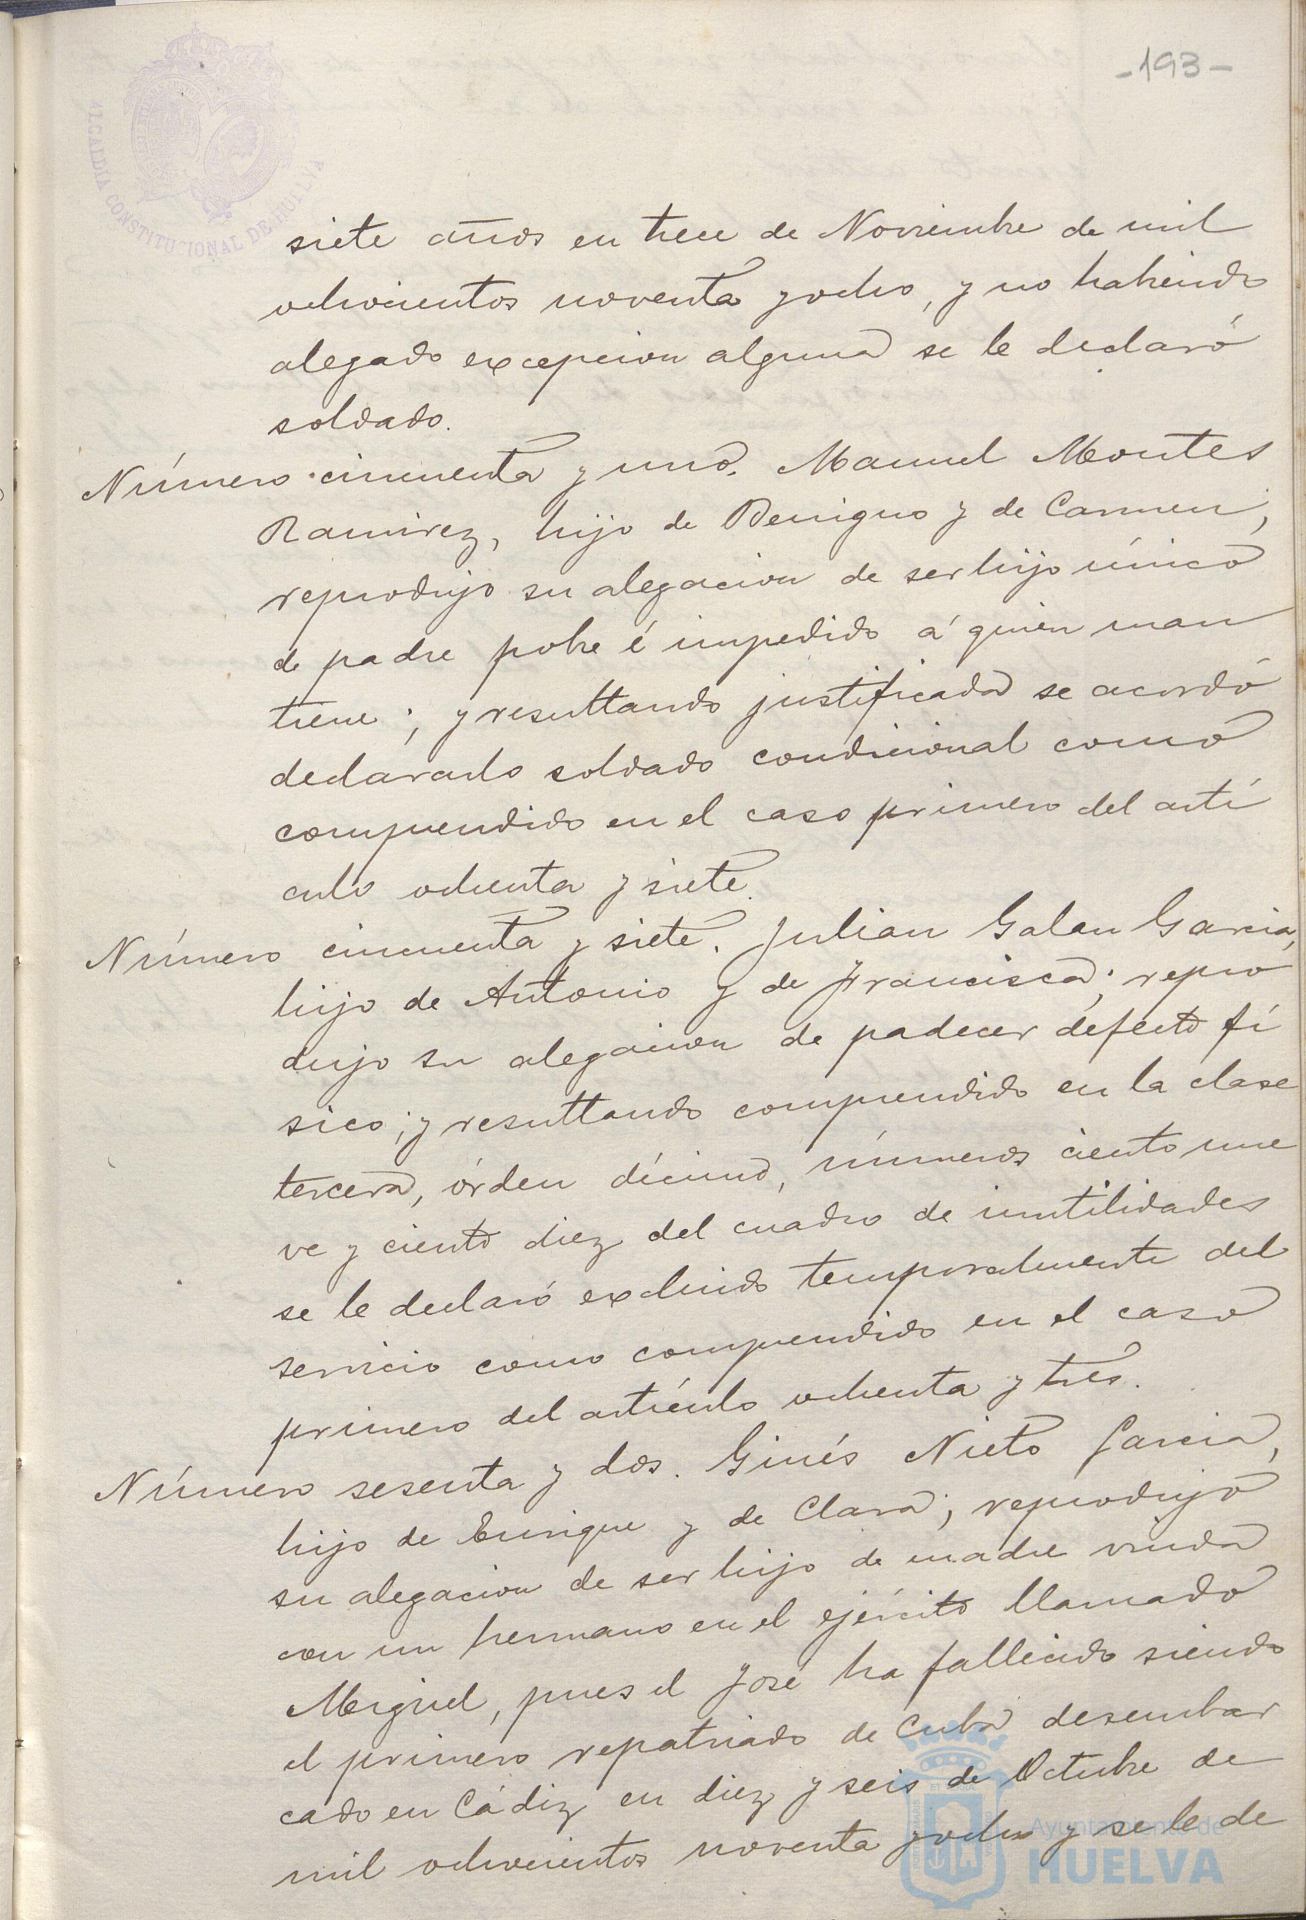 -193-
ALCALDIA CONSTITUCIONAL DE HUELVA
siete años en trece de Noviembre de mil
ochocientos noventa y ocho, y no habiendo
alegado excepcion alguna se le declaró
soldado.
Número cincuenta y uno. Manuel Montes
Ramirez, hijo de Benigno y de Carmen,
reprodujo su alegacion de ser hijo único
de padre pobre é impedido á quien man
tiene; y resultando justificada se acordó
declararlo soldado condicional como
comprendido en el caso primero del artí
culo ochenta y siete.
Número cincuenta y siete. Julian Galan Garcia,
hijo de Antonio y de Francisca; repro
dujo su alegacion de padecer defecto fí
sico; y resultando comprendido en la clase
tercera, órden décimo, números ciento nue
ve y ciento diez del cuadro de inutilidades
se le declaró excluido temporalmente del
servicio como comprendido en el caso
primero del artículo ochenta y tres.
Número sesenta y dos. Ginés Nieto Garcia,
hijo de Enrique y de Clara; reprodujo
su alegacion de ser hijo de madre viuda
con un hermano en el ejército llamado
Miguel, pues el José ha fallecido siendo
el primero repatriado de Cuba desembar
cado en Cádiz en diez y seis de Octubre de
mil ochocientos noventa y ocho y se le de
Ayuntamiento de
HUELVA